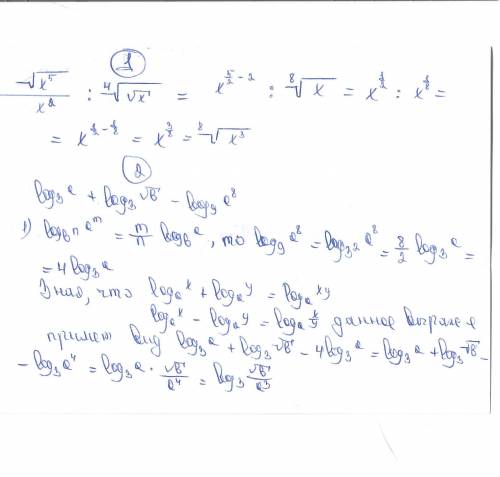 1
√x⁵ / x² : ⁴√(√x) = x^(5/2 - 2) : ⁸√x = x^(1/2) : x^(1/8) =
= x^(1/2 - 1/8) = x^(3/8) = ⁸√x³
2
log₃a + log₃√b - log₉a⁸
1) log_(bⁿ) a^m = m/n log_b a, то log₉a⁸ = log_(3²) a⁸ = 8/2 log₃a =
= 4log₃a
Зная, что logₐx + logₐy = logₐxy
logₐx - logₐy = logₐ x/y данное выраже е
примет вид log₃a + log₃√b - 4log₃a = log₃a + log₃√b -
- log₃a⁴ = log₃a · √b/a⁴ = log₃ √b/a³